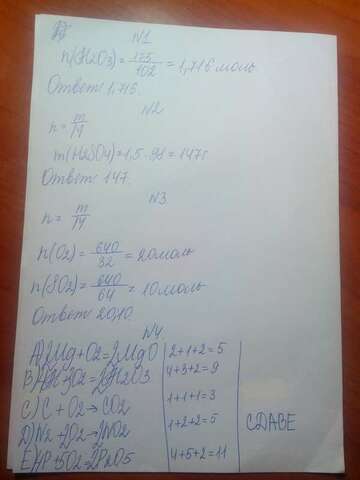 N1
n(Al2O3) = 175/102 = 1,716 моль
Ответ: 1,716.
N2
n = m/M
m(H2SO4) = 1,5 · 98 = 147г
Ответ: 147.
N3
n = m/M
n(O2) = 640/32 = 20моль
n(SO2) = 640/64 = 10моль
Ответ: 20,10.
N4
A) 2Mg + O2 = 2MgO 2+1+2=5
B) 4Al + 3O2 = 2Al2O3 4+3+2=9
C) C + O2 → CO2 1+1+1=3
D) N2 + 2O2 → 2NO2 1+2+2=5
E) 4P + 5O2 = 2P2O5 4+5+2=11
CDABE